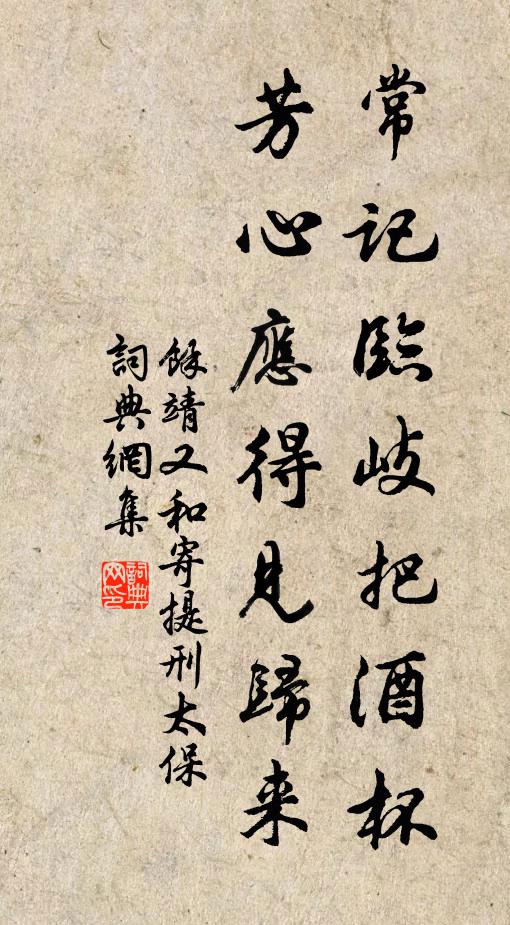 常記臨歧把酒杯
芳心應得見歸来
餘靖又和寄提刑太保
詞典網集
詞典
网印